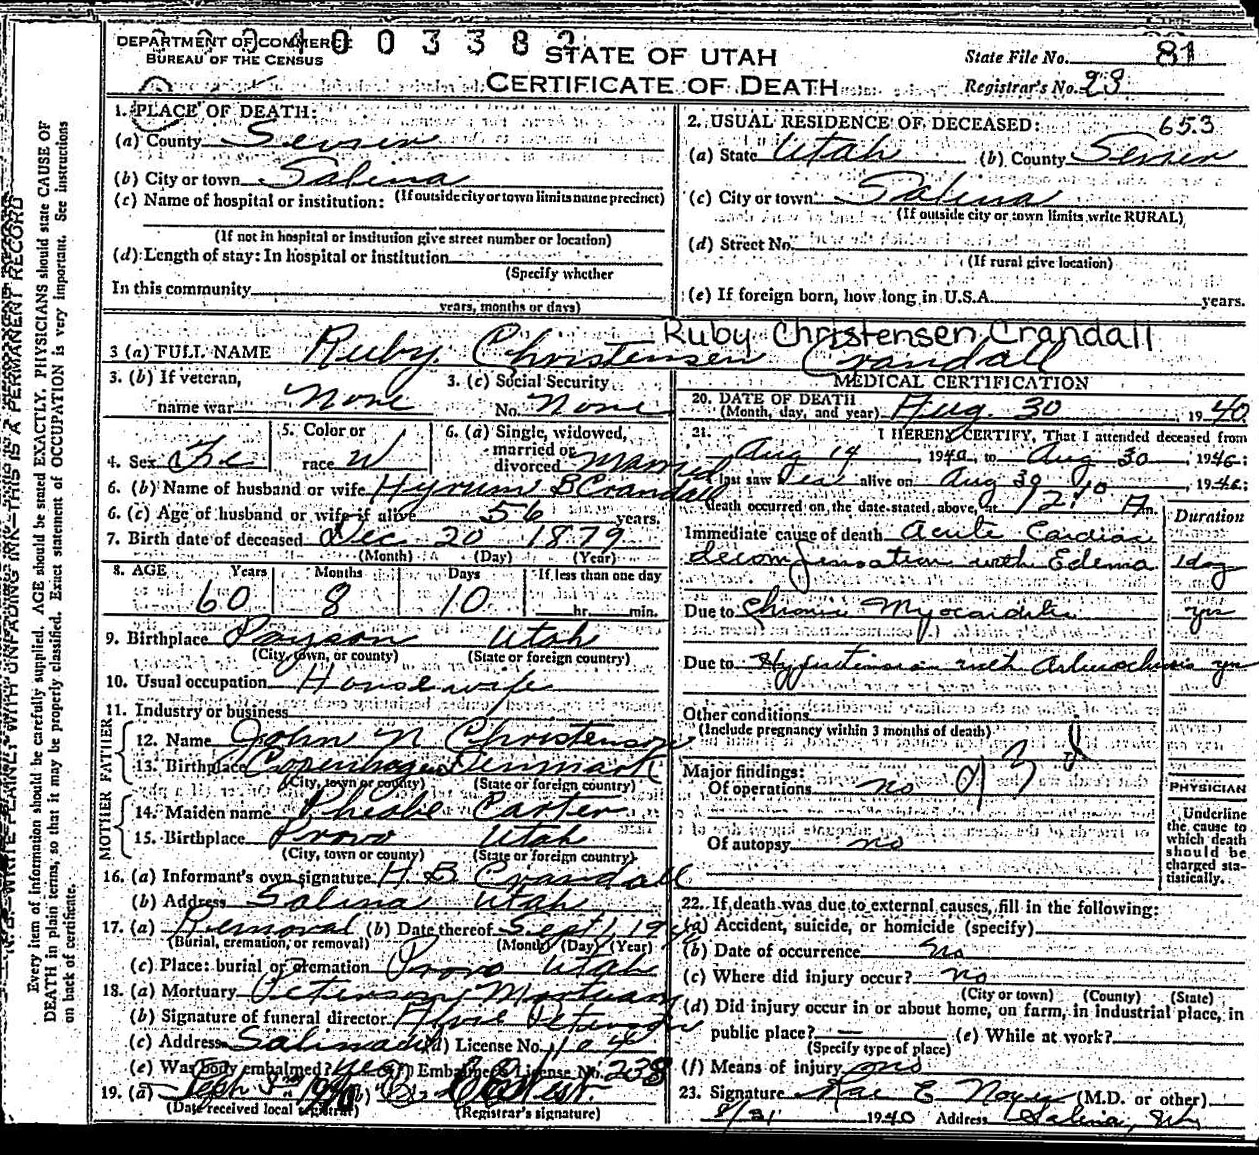 DEPARTMENT OF COMMERCE
BUREAU OF THE CENSUS
003382
STATE OF UTAH
CERTIFICATE OF DEATH
State File No. 81
Registrar's No. 23
1. PLACE OF DEATH:
(a) County Sevier
(b) City or town Salina
(If outside city or town limits name precinct)
(c) Name of hospital or institution:
(If not in hospital or institution give street number or location)
(d) Length of stay: In hospital or institution
(Specify whether
In this community
years, months or days)
2. USUAL RESIDENCE OF DECEASED: 653
(a) State Utah (b) County Sevier
(c) City or town Salina
(If outside city or town limits write RURAL)
(d) Street No.
(If rural give location)
(e) If foreign born, how long in U.S.A. years.
Ruby Christensen Crandall
3 (a) FULL NAME Ruby Christensen Crandall
3. (b) If veteran, name war None
3. (c) Social Security No. None
4. Sex Fe
5. Color or race W
6. (a) Single, widowed, married or divorced Married
6. (b) Name of husband or wife Hyrum B Crandall
6. (c) Age of husband or wife if alive 56 years.
7. Birth date of deceased Dec 20 1879
(Month) (Day) (Year)
8. AGE Years Months Days If less than one day
60 8 10 hr. min.
9. Birthplace Payson Utah
(City, town, or county) (State or foreign country)
10. Usual occupation Housewife
11. Industry or business
FATHER
12. Name John N Christenson
13. Birthplace Copenhagen Denmark
(City, town or county) (State or foreign country)
MOTHER
14. Maiden name Pheobe Carter
15. Birthplace Provo Utah
(City, town or county) (State or foreign country)
16. (a) Informant's own signature H B Crandall
(b) Address Salina Utah
17. (a) Removal (b) Date thereof Sept 1, 19
(Burial, cremation, or removal) (Month) (Day) (Year)
(c) Place: burial or cremation Provo Utah
18. (a) Mortuary Peterson Mortuary
(b) Signature of funeral director Peterson
(c) Address Salina (d) License No. 104
(e) Was body embalmed? yes (f) Embalmer's License No. 238
19. (a) Sept 3 1940 (b)
(Date received local registrar) (Registrar's signature)
MEDICAL CERTIFICATION
20. DATE OF DEATH
(Month, day, and year) Aug. 30 1940
21. I HEREBY CERTIFY, That I attended deceased from
Aug 14, 1940, to Aug 30, 1940;
I last saw her alive on Aug 30 1940;
death occurred on the date stated above, at 12:10 A m.
Duration
Immediate cause of death Acute Cardiac
decompensation with Edema 1 day
Due to Chronic Myocarditis yrs
Due to Hypertension with Arteriosclerosis yrs
Other conditions
(Include pregnancy within 3 months of death)
Major findings:
Of operations no
93 d
Of autopsy no
PHYSICIAN
Underline
the cause to
which death
should be
charged sta-
tistically.
22. If death was due to external causes, fill in the following:
(a) Accident, suicide, or homicide (specify)
(b) Date of occurrence no
(c) Where did injury occur? no
(City or town) (County) (State)
(d) Did injury occur in or about home, on farm, in industrial place, in
public place? — (e) While at work?
(Specify type of place)
(f) Means of injury no
23. Signature Rae E Noyes (M.D. or other)
8/31 1940 Address Salina, Ut
N.B.—WRITE PLAINLY WITH UNFADING INK—THIS IS A PERMANENT RECORD
Every item of information should be carefully supplied. AGE should be stated EXACTLY. PHYSICIANS should state CAUSE OF
DEATH in plain terms, so that it may be properly classified. Exact statement of OCCUPATION is very important. See instructions
on back of certificate.